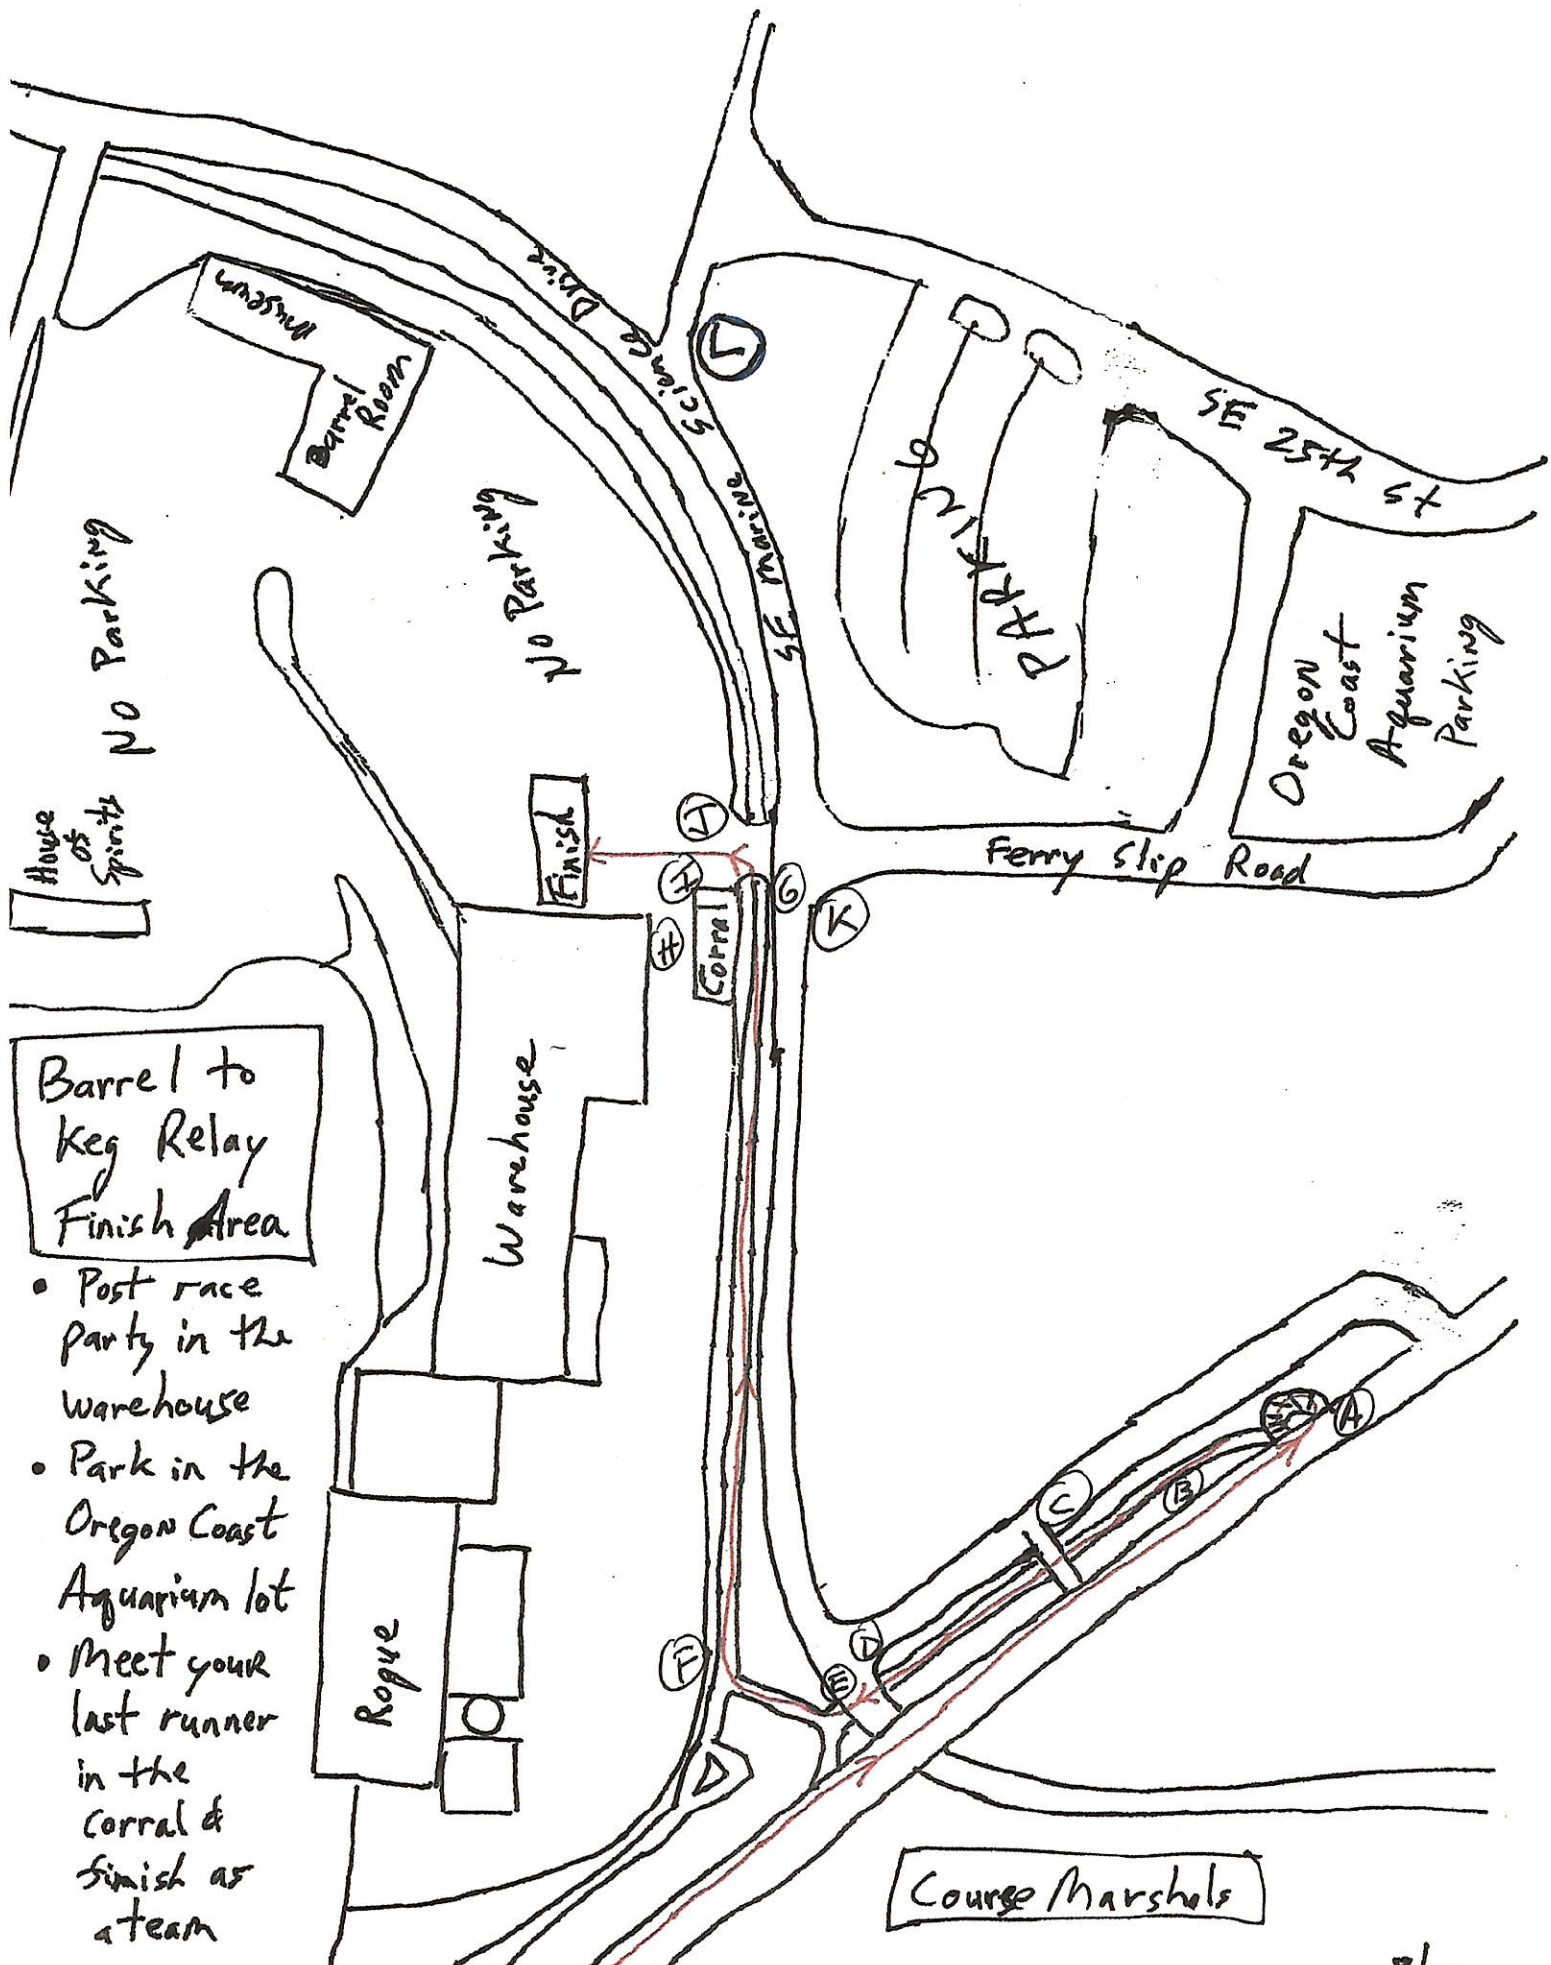 SE Marine Science Drive
Museum
Barrel
Room
L
PARKING
SE 25th St
Oregon
Coast
Aquarium
Parking
No Parking
No Parking
House
of
Spirits
Finish
J
I
G
H
K
Corral
Ferry Slip Road
Warehouse
Barrel to
Keg Relay
Finish Area
• Post race
party in the
warehouse
• Park in the
Oregon Coast
Aquarium lot
• Meet your
last runner
in the
corral &
finish as
a team
Rogue
A
B
C
D
E
F
Course Marshals